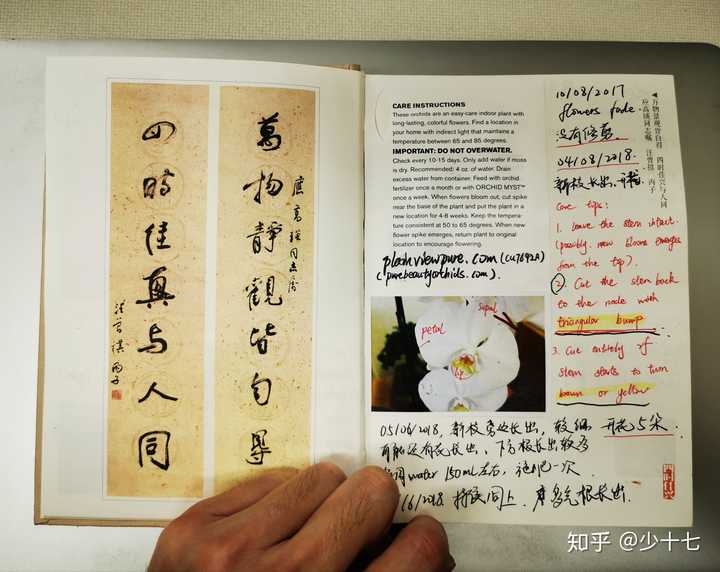 萬物靜觀皆自得
四時佳興与人同
汪曾祺 丙子
CARE INSTRUCTIONS
These orchids are an easy-care indoor plant with
long-lasting, colorful flowers. Find a location in
your home with indirect light that maintains a
temperature between 65 and 85 degrees.
IMPORTANT: DO NOT OVERWATER.
Check every 10-15 days. Only add water if moss
is dry. Recommended: 4 oz. of water. Drain
excess water from container. Feed with orchid
fertilizer once a month or with ORCHID MYST™
once a week. When flowers bloom out, cut spike
near the base of the plant and put the plant in a
new location for 4-8 weeks. Keep the tempera-
ture consistent at 50 to 65 degrees. When new
flower spike emerges, return plant to original
location to encourage flowering.
plainviewpure.com (CU7692A)
(purebeautyorchids.com).
petal
sepal
lip
10/08/2017
flowers fade.
没有修剪.
04/08/2018.
新枝长出,
Care tips:
1. Leave the stem intact.
(possibly new blooms emerges
from the top).
2. Cut the stem back
to the node with
triangular bump
3. Cut entirely if
stem starts to turn
brown or yellow
◀万物静观皆自得 四时佳兴与人同
同志嘱 汪曾祺 丙子
05/06/2018, 新枝旁边长出, 较细 开花5朵.
还有花长出, 下方根长出较多
water 150ml左右,
/6/2018 同上. 根长出.
四时佳兴
知乎 @少十七